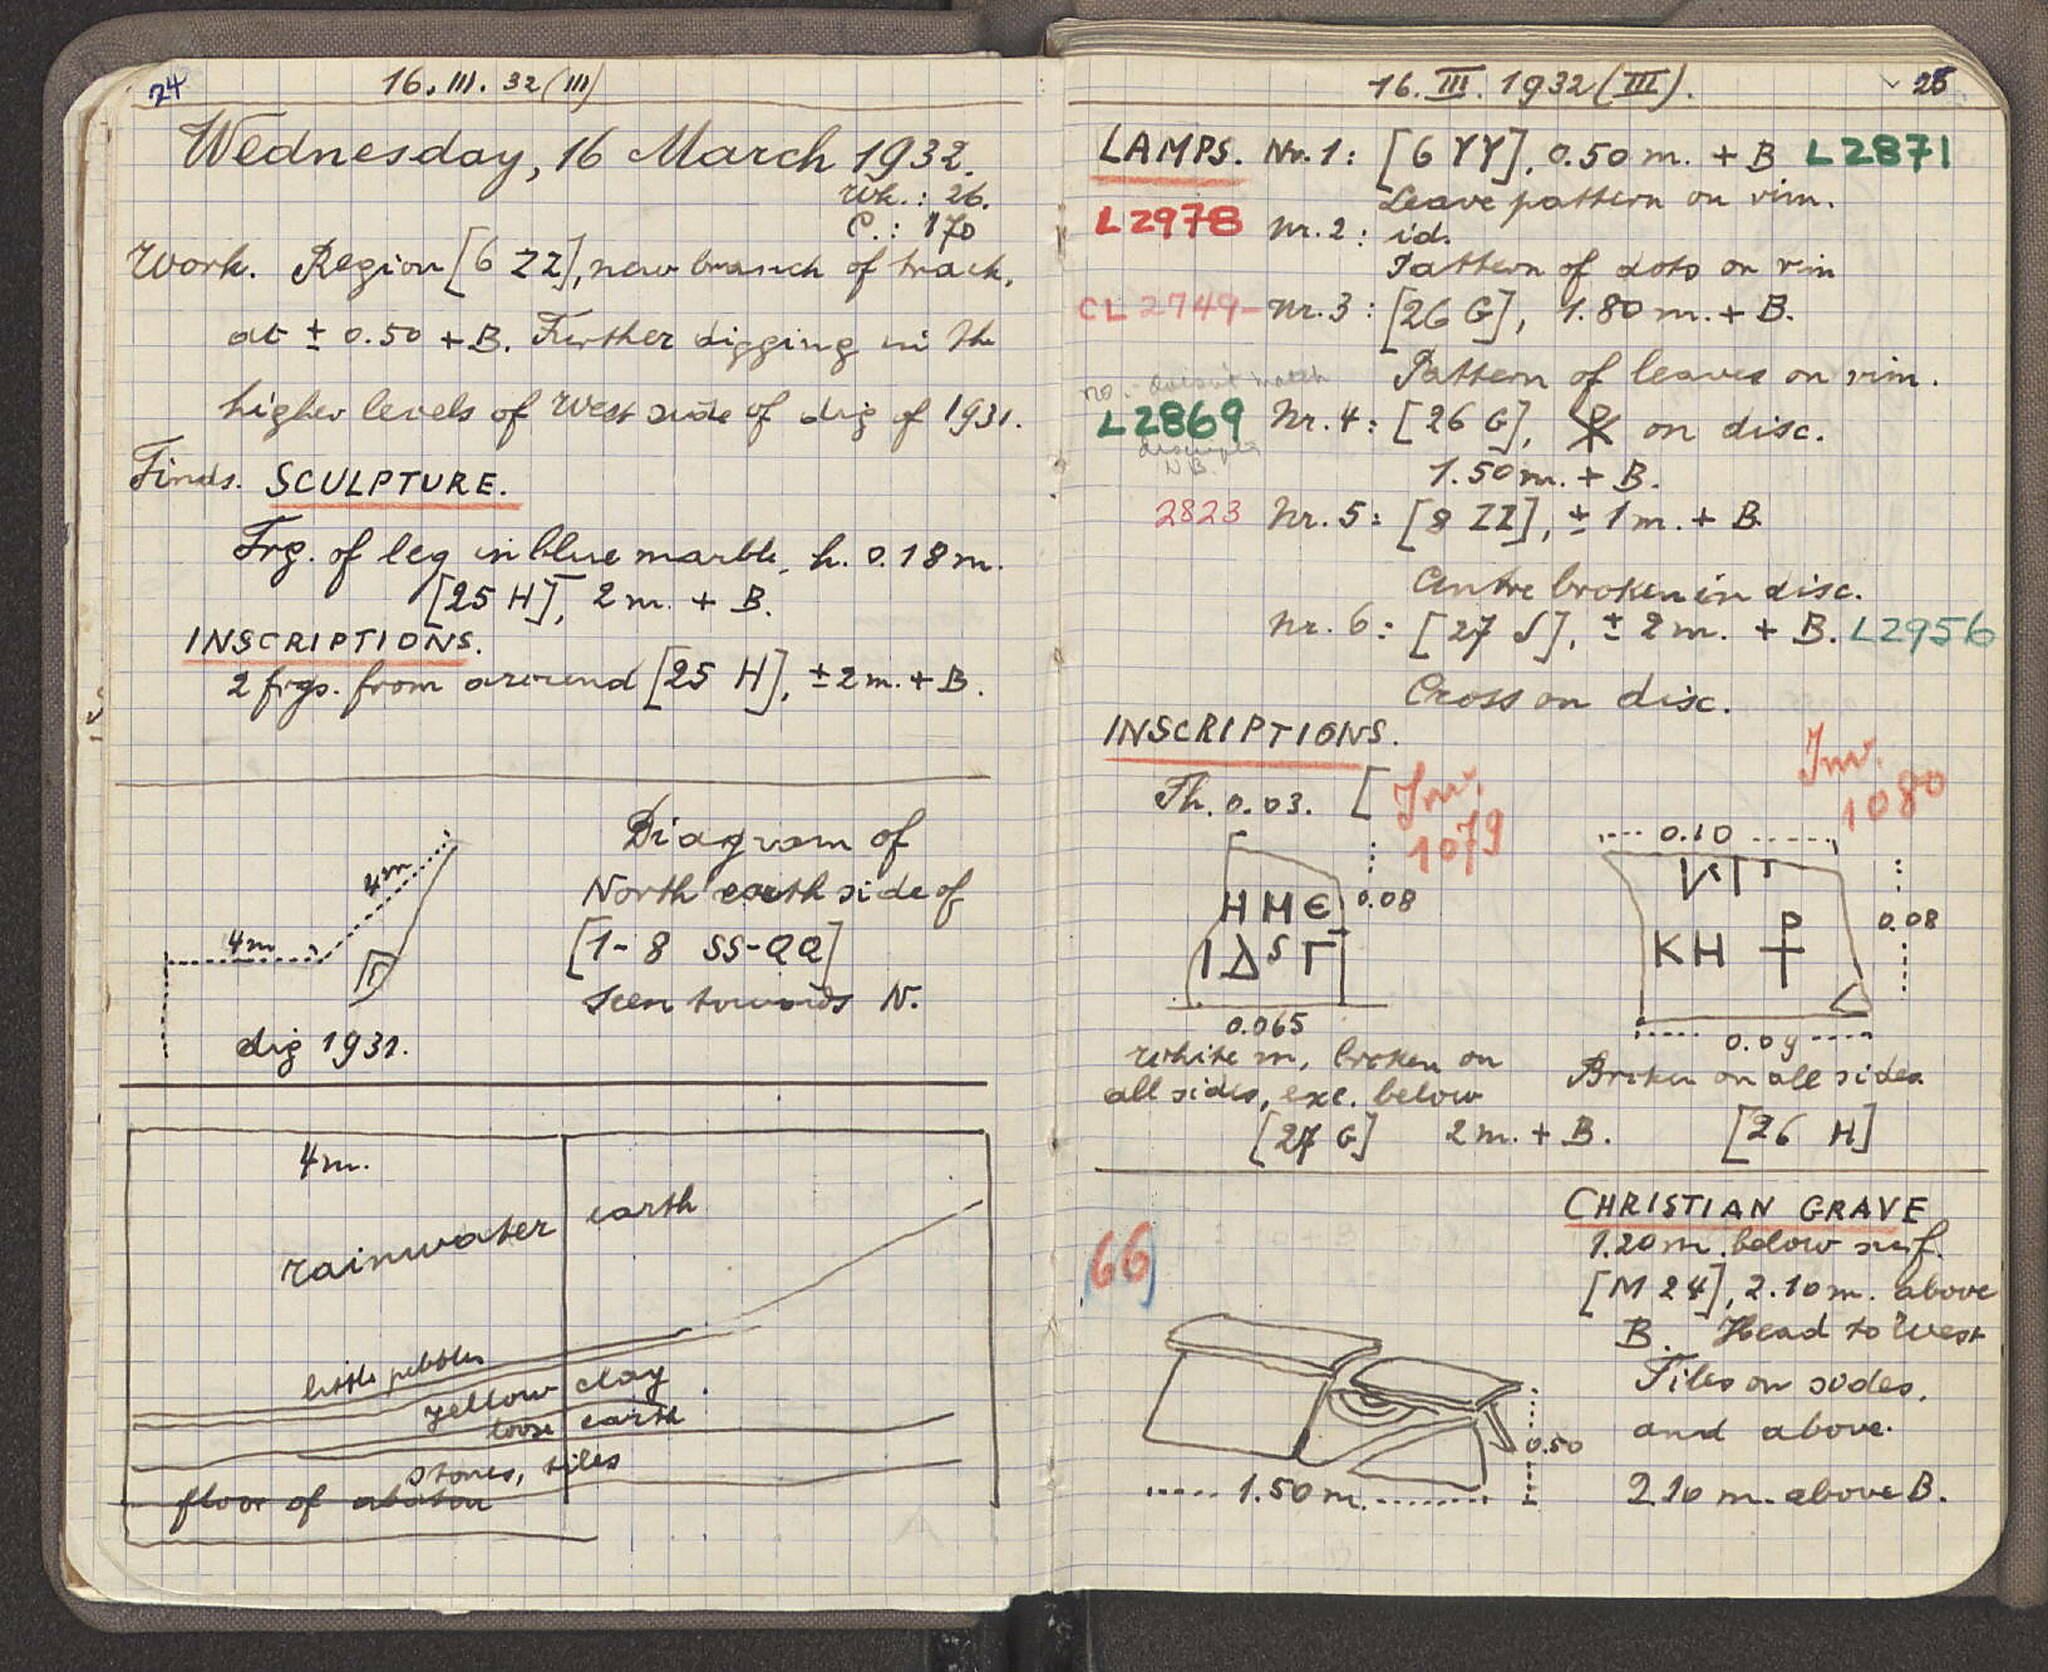 24
16.III.32 (III)
Wednesday, 16 March 1932.
Wk.: 26.
C.: 170
Work. Region [6 ZZ], new branch of track,
at ± 0.50 + B. Further digging in the
higher levels of West side of dig of 1931.
Finds. SCULPTURE.
Frg. of leg in blue marble, h. 0.18 m.
[25 H], 2 m. + B.
INSCRIPTIONS.
2 frgs. from around [25 H], ± 2 m. + B.
4 m
4 m
dig 1931.
Diagram of
North earth side of
[1-8 SS-QQ]
seen towards N.
4 m.
rainwater earth
little pebbles
yellow clay
loose earth
stones, tiles
floor of
16. III. 1932 (III).
25
LAMPS. Nr. 1: [6 YY], 0.50 m. + B L2871
Leave pattern on rim.
L2978 Nr. 2: id.
Pattern of dots on rim
CL 2749 - Nr. 3: [26 G], 1.80 m. + B.
Pattern of leaves on rim.
no. doesn't match
L2869 Nr. 4: [26 G], ☧ on disc.
N.B.
1.50 m. + B.
2823 Nr. 5: [8 ZZ], ± 1 m. + B.
Centre broken in disc.
Nr. 6: [27 J], ± 2 m. + B. L2956
Cross on disc.
INSCRIPTIONS.
Th. 0.03. [
Inv.
1079
Inv.
1080
ΗΜЄ
ΙΔSΓ
0.08
0.065
0.10
ΚΗ
0.08
0.09
White m, broken on
all sides, exc. below
[27 G] 2 m. + B.
Broken on all sides
[26 H]
66
CHRISTIAN GRAVE
1.20 m. below surf.
[M 24], 2.10 m. above
B. Head to West
Tiles on sides,
and above.
2.10 m. above B.
0.50
1.50 m.